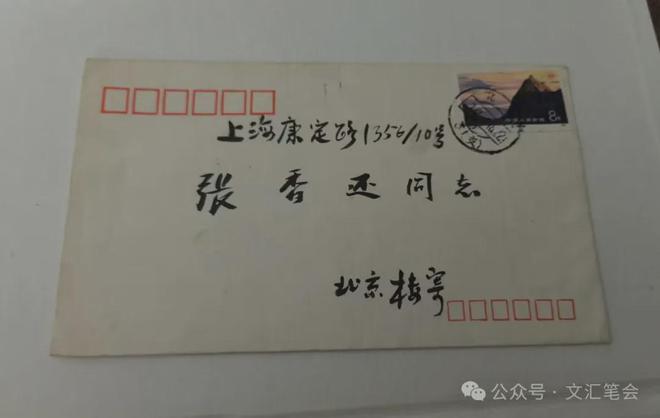 上海康定路1356/10号
张香还同志
北京梅寄
8分
公众号·文汇笔会